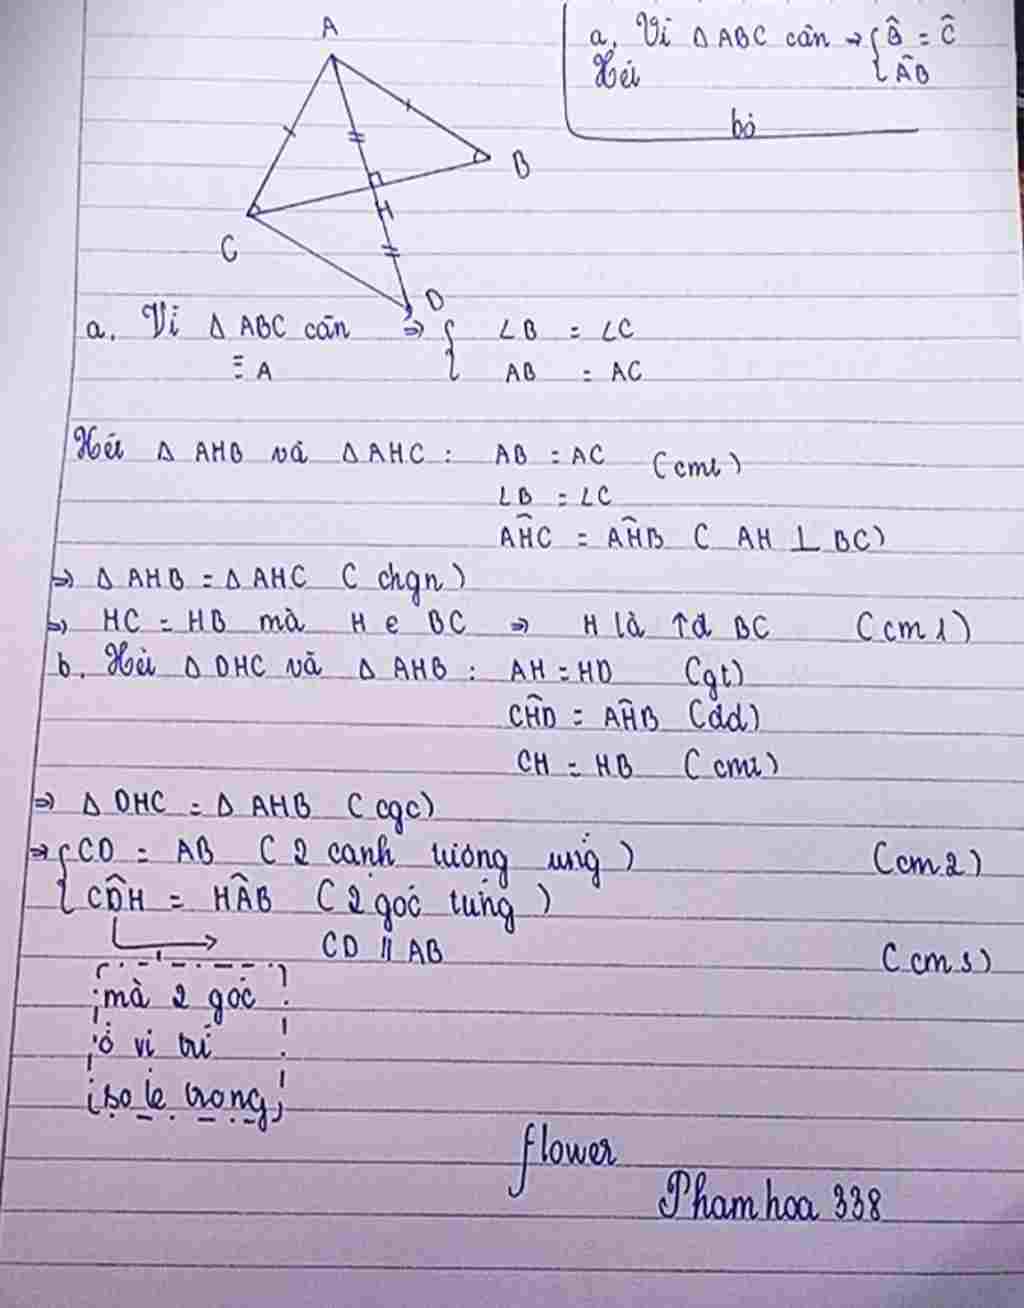 A
B
C
H
D
a, Vì Δ ABC cân → { B̂ = Ĉ
Xét { AB
bỏ
a. Vì Δ ABC cân => { ∠B = ∠C
Ξ A { AB = AC
Xét Δ AHB và Δ AHC : AB = AC (cmt)
∠B = ∠C
AĤC = AĤB ( AH ⊥ BC)
=> Δ AHB = Δ AHC ( chgn )
=> HC = HB mà H e BC => H là ↑đ BC (cm1)
b. Xét Δ DHC và Δ AHB : AH = HD (gt)
CĤD = AĤB (đđ)
CH = HB (cmt)
=> Δ DHC = Δ AHB ( cgc)
=> { CD = AB ( 2 cạnh tương ứng ) (cm2)
{ CD̂H = HÂB ( 2 góc tứng )
CD // AB (cm3)
mà 2 góc
ở vị trí
so le trong
flower
Phamhoa 338